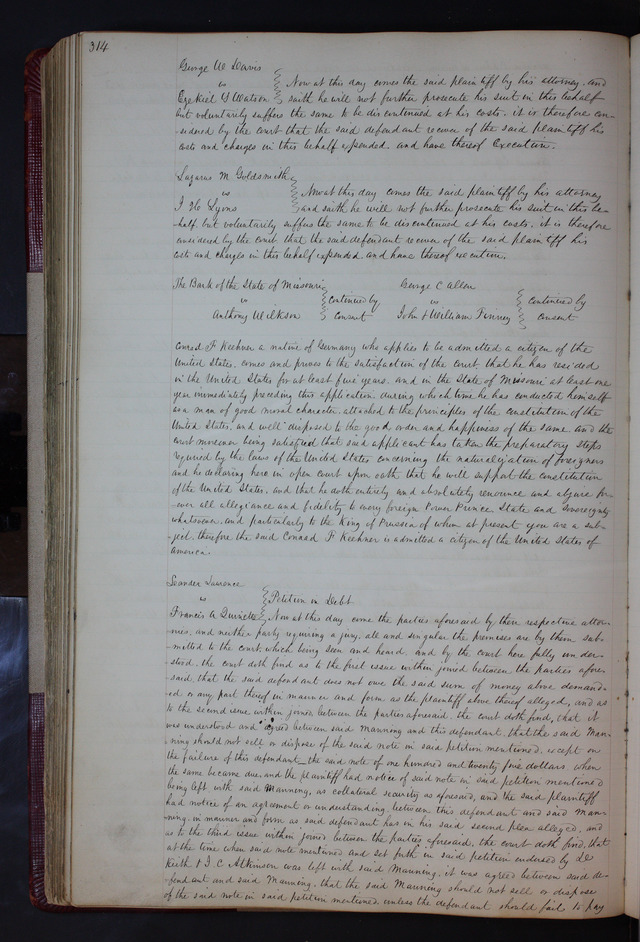 314
George W Davis
vs
Ezekiel S Watson
Now at this day comes the said plaintiff by his attorney, and
saith he will not further prosecute his suit in this behalf
but voluntarily suffers the same to be discontinued at his costs. it is therefore con-
sidered by the court that the said defendant recover of the said plaintiff his
costs and charges in this behalf expended. and have thereof Execution.
Lazarus M Goldsmith
vs
Lyons
Now at this day comes the said plaintiff by his attorney
and saith he will not further prosecute his suit in this be-
-half. but voluntarily suffers the same to be discontinued at his costs, it is therefore
considered by the court that the said defendant recover of the said plaintiff his
costs and charges in this behalf expended. and have thereof execution.
The Bank of the State of Missouri
vs
Anthony Wilkson
continued by
consent
George C Allen
vs
John & William Finney
continued by
consent
Conrad F Keehner a native of Germany who applies to be admitted a citizen of the
United States. comes and proves to the satisfaction of the court that he has resided
in the United States for at least five years. and in the State of Missouri at least one
year immediately preceding this application. during which time he has conducted himself
as a man of good moral character. attached to the principles of the constitution of the
United States. and well disposed to the good order and happiness of the same. and the
court moreover being satisfied that said applicant has taken the preparatory steps
required by the laws of the United States concerning the naturalization of foreigners
and he declaring here in open court upon oath that he will support the constitution
of the United States. and that he doth entirely and absolutely renounce and abjure for-
-ever all allegiance and fidelity to every foreign Power Prince State and Sovereignty
whatsoever. and particularly to the King of Prussia of whom at present you are a sub-
-ject. therefore the said Conrad F Keehner is admitted a citizen of the United States of
America.
Leander Lawrence
vs
Francis A Quinette
Petition in Debt
Now at this day come the parties aforesaid by their respective attor-
-nies. and neither party requiring a jury. all and singular the premises are by them sub-
-mitted to the court. which being seen and heard. and by the court here fully under-
stood. the court doth find as to the first issue within joined between the parties afore-
said, that the said defendant does not owe the said sum of money above demand-
-ed or any part thereof in manner and form as the plaintiff above thereof alleged, and as
to the second issue within joined between the parties aforesaid. the court doth find, that it
was understood and agreed between said Manning and this defendant, that the said Man-
-ning should not sell or dispose of the said note in said petition mentioned. except on
the failure of this defendant the said note of one hundred and twenty five dollars when
the same became due, and the plaintiff had notice of said note in said petition mentioned
being left with said Manning, as collateral security as aforesaid, and the said plaintiff
had notice of an agreement or understanding. between this defendant and said Man-
-ning. in manner and form as said defendant has in his said second plea alleged, and
as to the third issue within joined between the parties aforesaid. the court doth find, that
at the time when said note mentioned and set forth in said petition endorsed by
Keith & J. C Atkinson was left with said Manning. it was agreed between said de-
fendant and said Manning. that the said Manning should not sell or dispose
of the said note in said petition mentioned unless the defendant should fail to pay